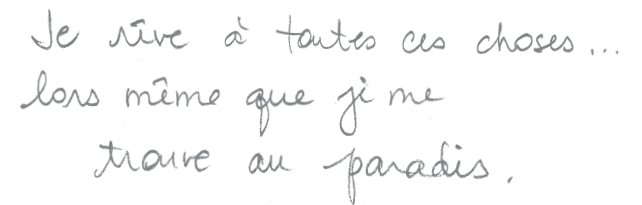 Je rêve à toutes ces choses...
lors même que je me
trouve au paradis.